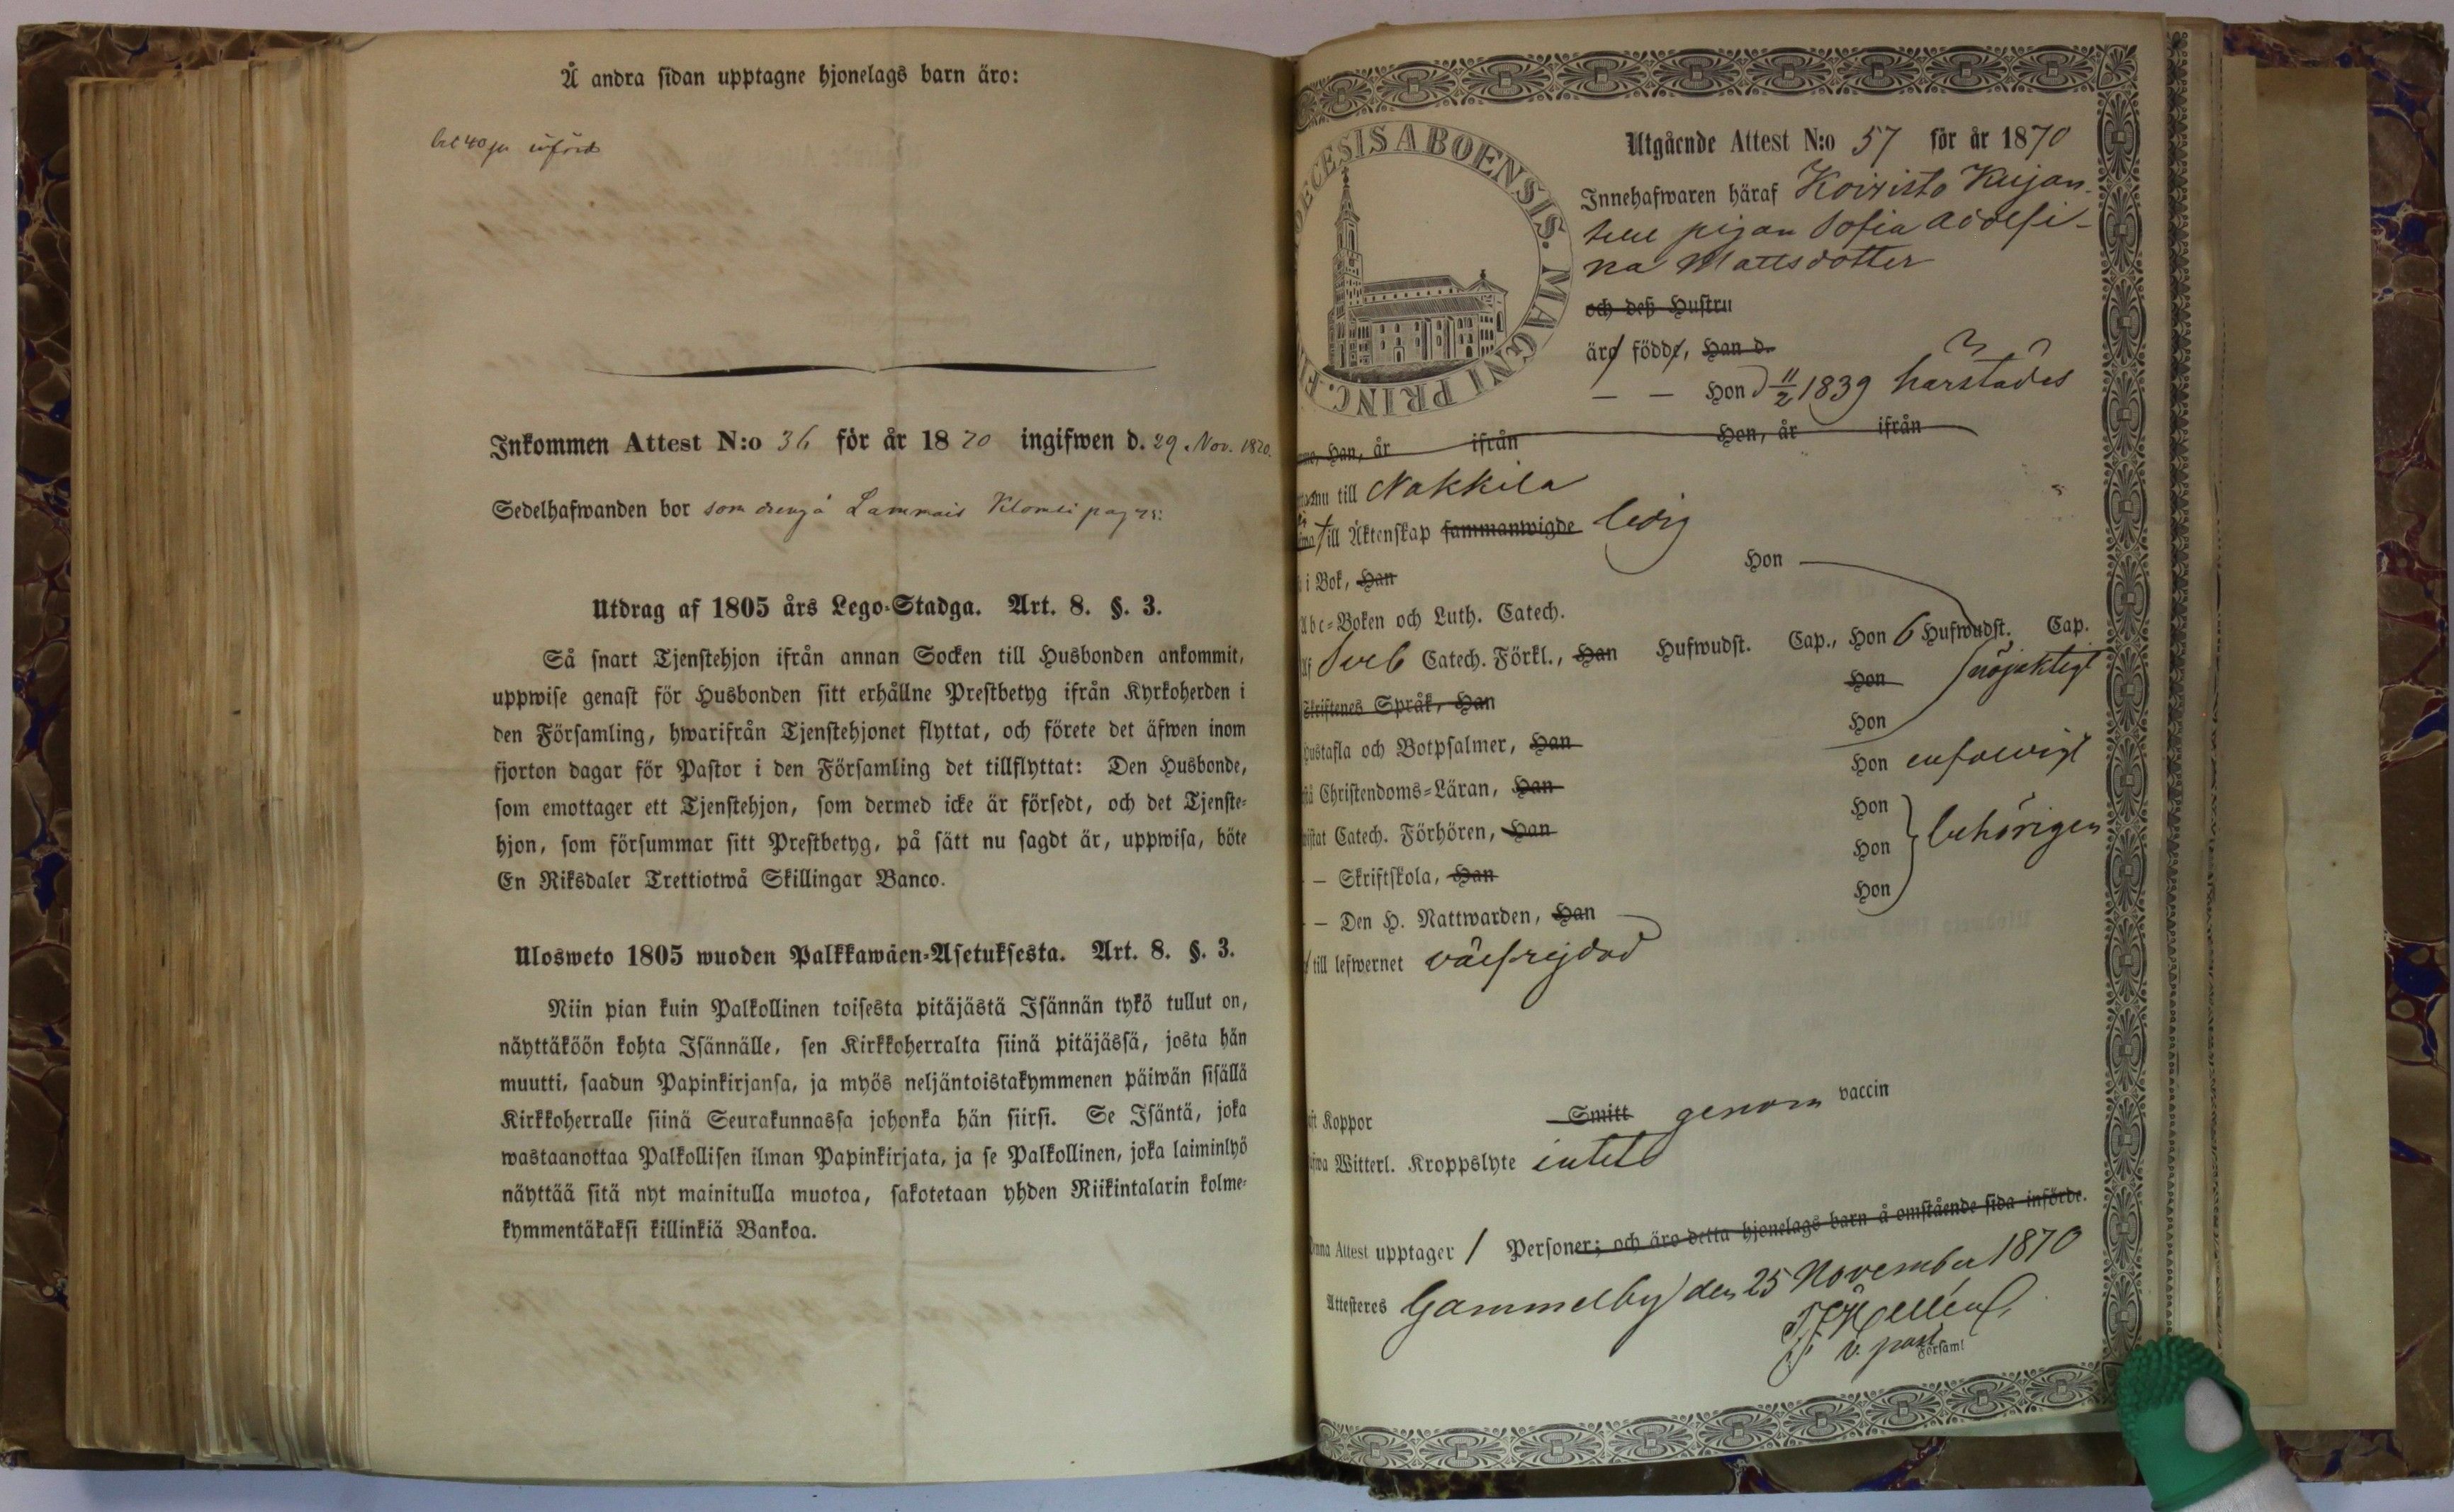 Å andra sidan upptagne hjonelags barn äro:
införd
Inkommen Attest N:o 36 för år 1870 ingifwen d. 29. Nov. 1870.
Sedelhafwanden bor som dreng å Lammais Klomsi pag 75:
Utdrag af 1805 års Lego-Stadga. Art. 8. §. 3.
Så snart Tjenstehjon ifrån annan Socken till Husbonden ankommit,
uppwise genast för Husbonden sitt erhållne Prestbetyg ifrån Kyrkoherden i
den Församling, hwarifrån Tjenstehjonet flyttat, och förete det äfwen inom
fjorton dagar för Pastor i den Församling det tillflyttat: Den Husbonde,
som emottager ett Tjenstehjon, som dermed icke är försedt, och det Tjenste-
hjon, som försummar sitt Prestbetyg, på sätt nu sagdt är, uppwisa, böte
En Riksdaler Trettiotwå Skillingar Banco.
Ulosweto 1805 wuoden Palkkawäen-Asetuksesta. Art. 8. §. 3.
Niin pian kuin Palkollinen toisesta pitäjästä Isännän tykö tullut on,
näyttäköön kohta Isännälle, sen Kirkkoherralta siinä pitäjässä, josta hän
muutti, saadun Papinkirjansa, ja myös neljäntoistakymmenen päiwän sisällä
Kirkkoherralle siinä Seurakunnassa johonka hän siirsi. Se Isäntä, joka
wastaanottaa Palkollisen ilman Papinkirjata, ja se Palkollinen, joka laiminlyö
näyttää sitä nyt mainitulla muotoa, sakotetaan yhden Riikintalarin kolme-
kymmentäkaksi killinkiä Bankoa.
OECESIS ABOENSIS. MAGNI PRINC. FI
Utgående Attest N:o 57 för år 1870
Innehafwaren häraf Koivisto Kujan-
pigan Sofia Adolfi-
na Mattsdotter
och deß Hustru
äro födde, Han d.
— — Hon d 11/2 1839 härstädes
Han, år ifrån Hon, år ifrån
nu till Nakkila
till Äktenskap sammanwigde ledig
i Bok, Han Hon
Abc-Boken och Luth. Catech.
af Sveb Catech. Förkl., Han Hufwudst. Cap., Hon 6 Hufwudst. Cap.
Skriftenes Språk, Han Hon nöjaktigt
Hustafla och Botpsalmer, Han Hon
Christendoms-Läran, Han Hon enfaldigt
Catech. Förhören, Han Hon
— Skriftskola, Han Hon behörigen
— Den H. Nattwarden, Han Hon
till lefwernet välfrejdad
Koppor Smitt genom vaccin
Witterl. Kroppslyte intet
Attest upptager 1 Personer; och äro detta hjonelags barn å omstående sida införde.
Attesteres Gammelby den 25 November 1870
Hellén
v. past
Församl